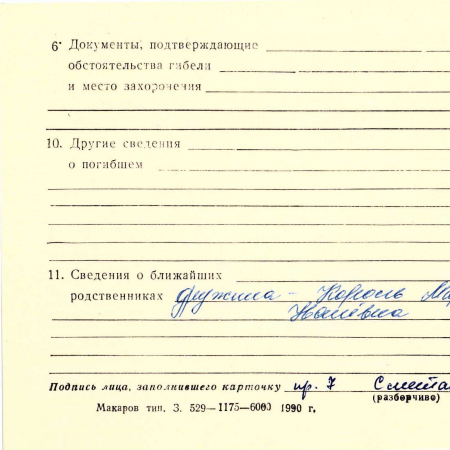 6· Документы, подтверждающие
обстоятельства гибели
и место захоронения
10. Другие сведения
о погибшем
11. Сведения о ближайших
родственниках дружина – Король
Подпись лица, заполнившего карточку пр. 7
(разборчиво)
Макаров тип. З. 529—1175—6000 1990 г.